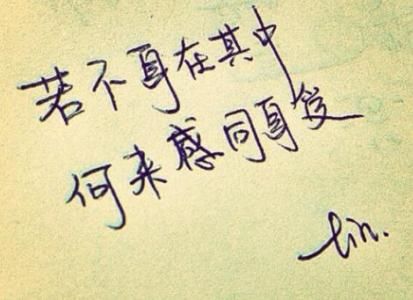 若不身在其中
何来感同身受
tin.